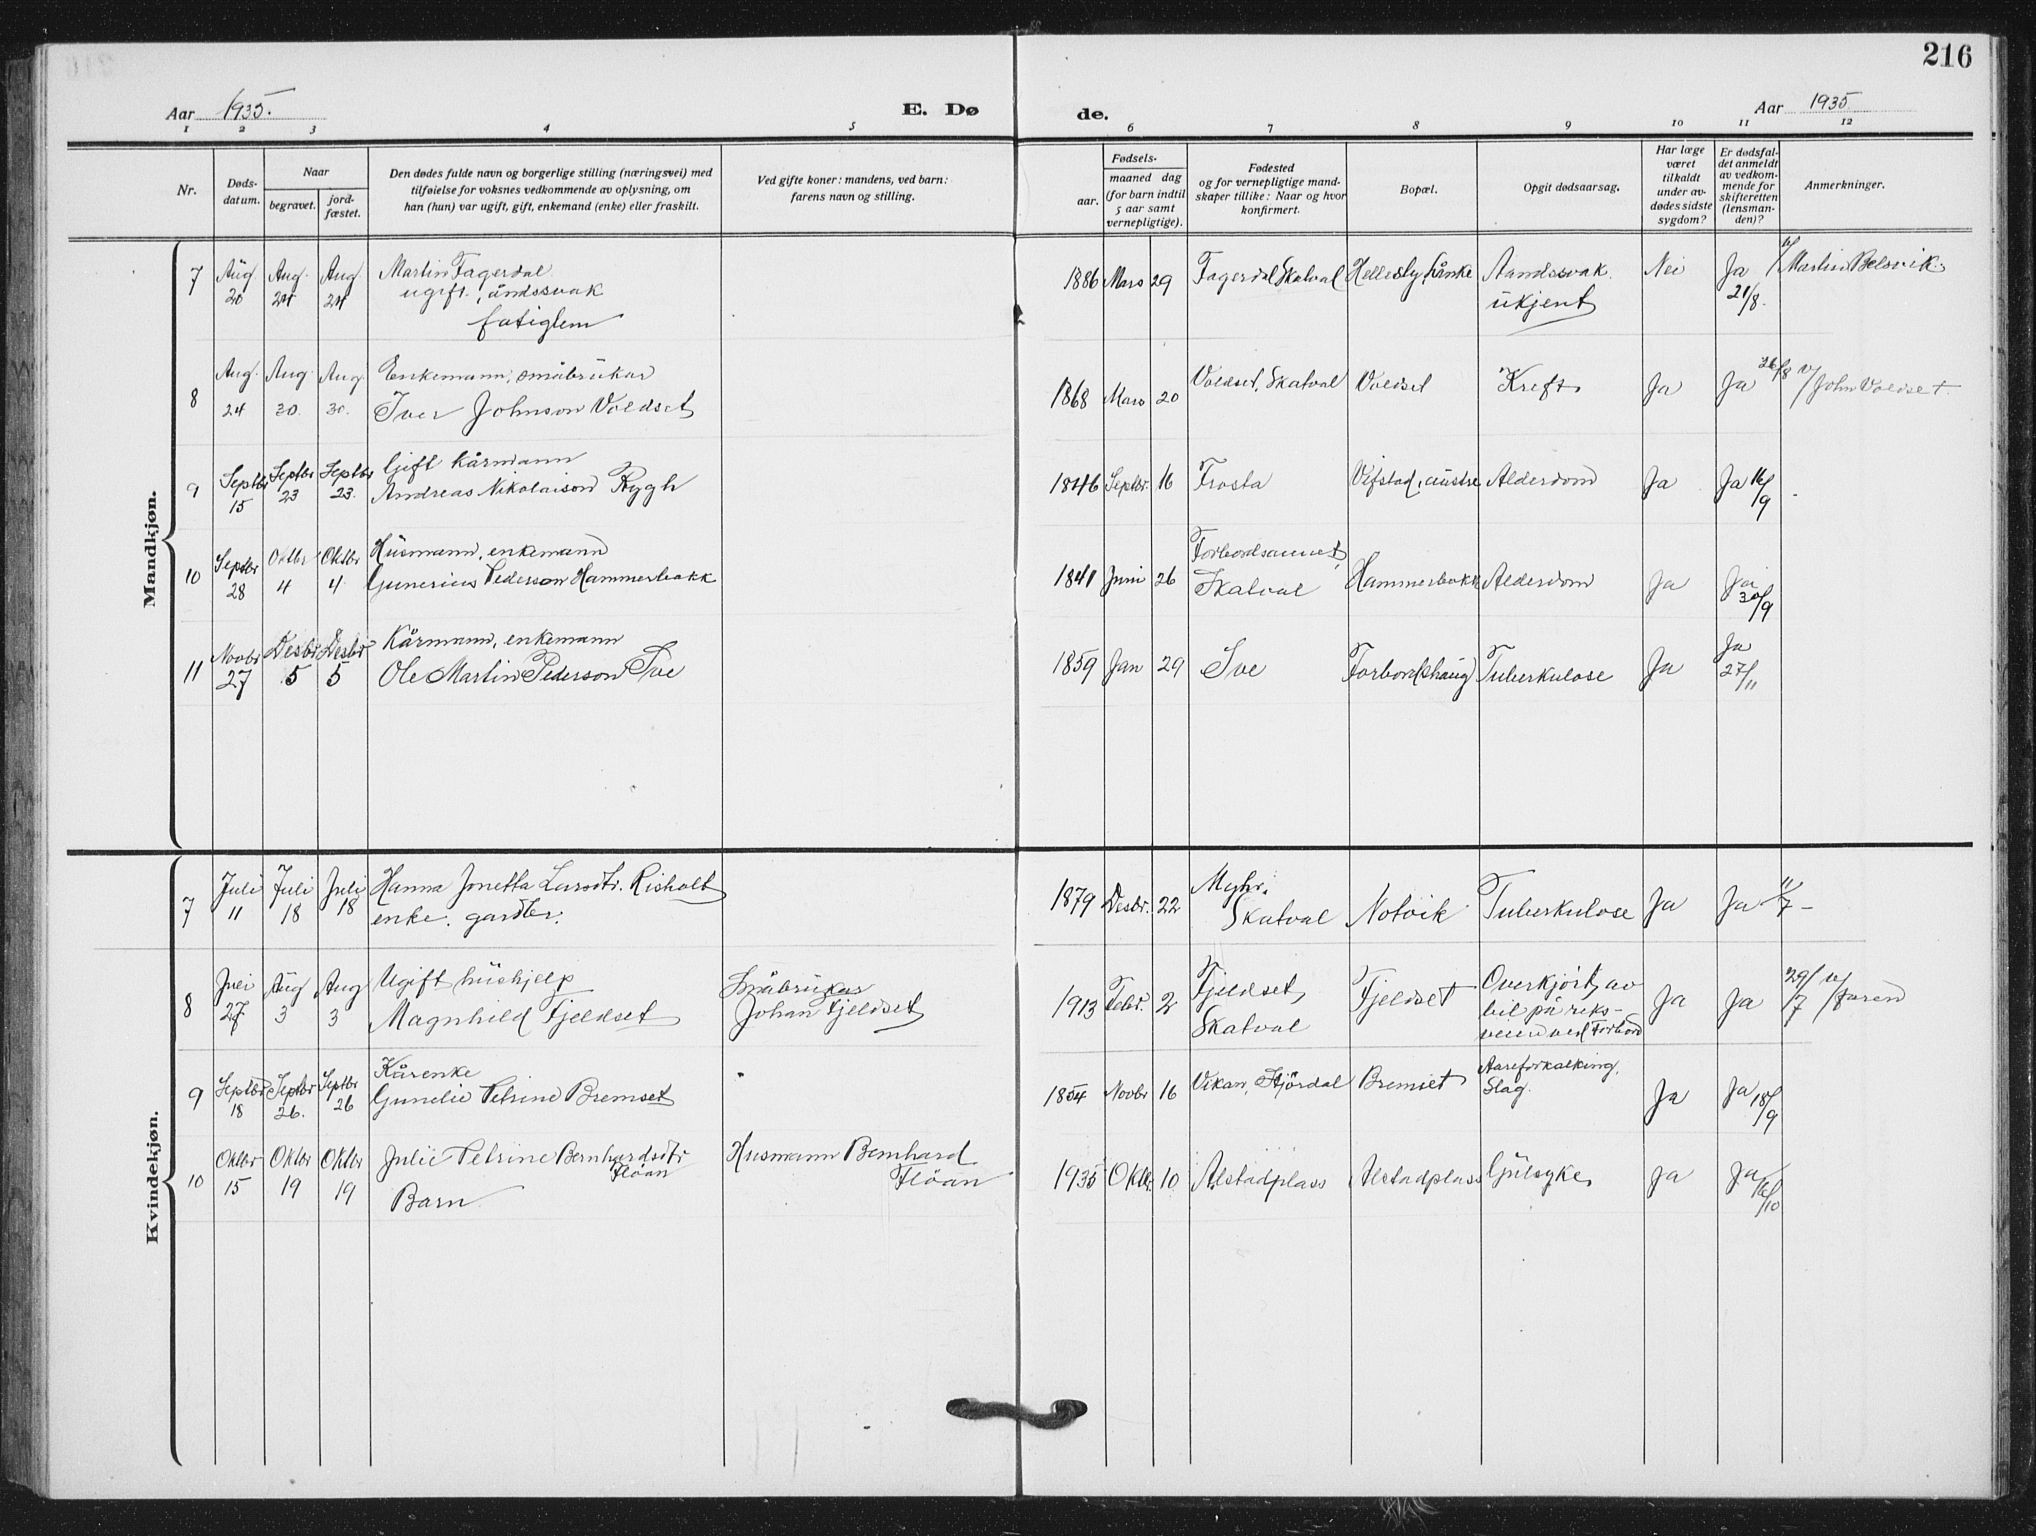 216
Aar 1935.
E. Dø
de.
Aar 1935
1 2 3 4 5 6 7 8 9 10 11 12
Nr.
Døds-
datum.
Naar
begravet.
jord-
fæstet.
Den dødes fulde navn og borgerlige stilling (næringsvei) med
tilføielse for voksnes vedkommende av oplysning, om
han (hun) var ugift, gift, enkemand (enke) eller fraskilt.
Ved gifte koner: mandens, ved barn:
farens navn og stilling.
Fødsels-
aar.
maaned dag
(for barn indtil
5 aar samt
vernepligtige).
Fødested
og for vernepligtige mand-
skaper tillike: Naar og hvor
konfirmert.
Bopæl.
Opgit dødsaarsag.
Har læge
været
tilkaldt
under av-
dødes sidste
sygdom?
Er dødsfal-
det anmeldt
av vedkom-
mende for
skifteretten
(lensman-
den)?
Anmerkninger.
Mandkjøn.
7 Aug 20 Aug. 24 Aug 24
Martin Fagerdal
ugift, åndssvak
fatiglem
1886 Mars 29 Fagerdal Skatval Helleeby, Lånke Aandssvak
ukjent
Nei Ja 21/8. v/ Martin Belsvik
8 Aug. 24 Aug 30. Aug 30.
Enkemann, småbrukar
Iver Johnson Voldset
1868 Mars 20 Voldset, Skatval Voldset Kreft Ja Ja 26/8 v/ John Voldset
9 Septbr 15 Septbr 23 Septbr 23
Gift kårmann
Andreas Nikolaison Rygh
1846 Septbr. 16 Frosta Vifstad, austre Alderdom Ja Ja 16/9
10 Septbr 28 Octbr 4 Oktbr 4
Husmann, enkemann
Gunerius Pederson Hammerbakk
1841 Juni 26 Forbordsannet,
Skatval
Hammerbakk Alderdom Ja Ja 30/9
11 Novbr 27 Desbr 5 Desbr 5
Kårmann, enkemann
Ole Martin Pederson Sve
1859 Jan 29 Sve Forbord(shaug) Tuberkulose Ja Ja 27/11
Kvindekjøn.
7 Juli 11 Juli 18 Juli 18
Hanna Jonetta Larsdtr. Risholt
enke. gardbr.
1879 Desbr. 22 Myhr,
Skatval
Notvik Tuberkulose Ja Ja 11/7
8 Juli 27 Aug 3 Aug 3
Ugift hushjelp
Magnhild Fjeldset
Småbrukar
Johan Fjeldset
1913 Febr. 2 Fjeldset,
Skatval
Fjeldset Overkjørt av
bil på riks-
veien ved Forbord
Ja Ja 29/7 v/ faren
9 Septbr 18 Septbr 26. Septbr 26
Kårenke
Gunelie Petrine Bremset
1854 Novbr 16 Vikan, Stjørdal Bremset Aareforkalking,
Slag.
Ja Ja 18/9
10 Oktbr 15 Oktbr 19 Oktbr 19
Julie Petrine Bernhardsdtr
Fløan
Barn
Husmann Bernhard
Fløan
1935 Oktbr. 10 Alstadplass Alstadplass Gulsyke Ja Ja 16/10